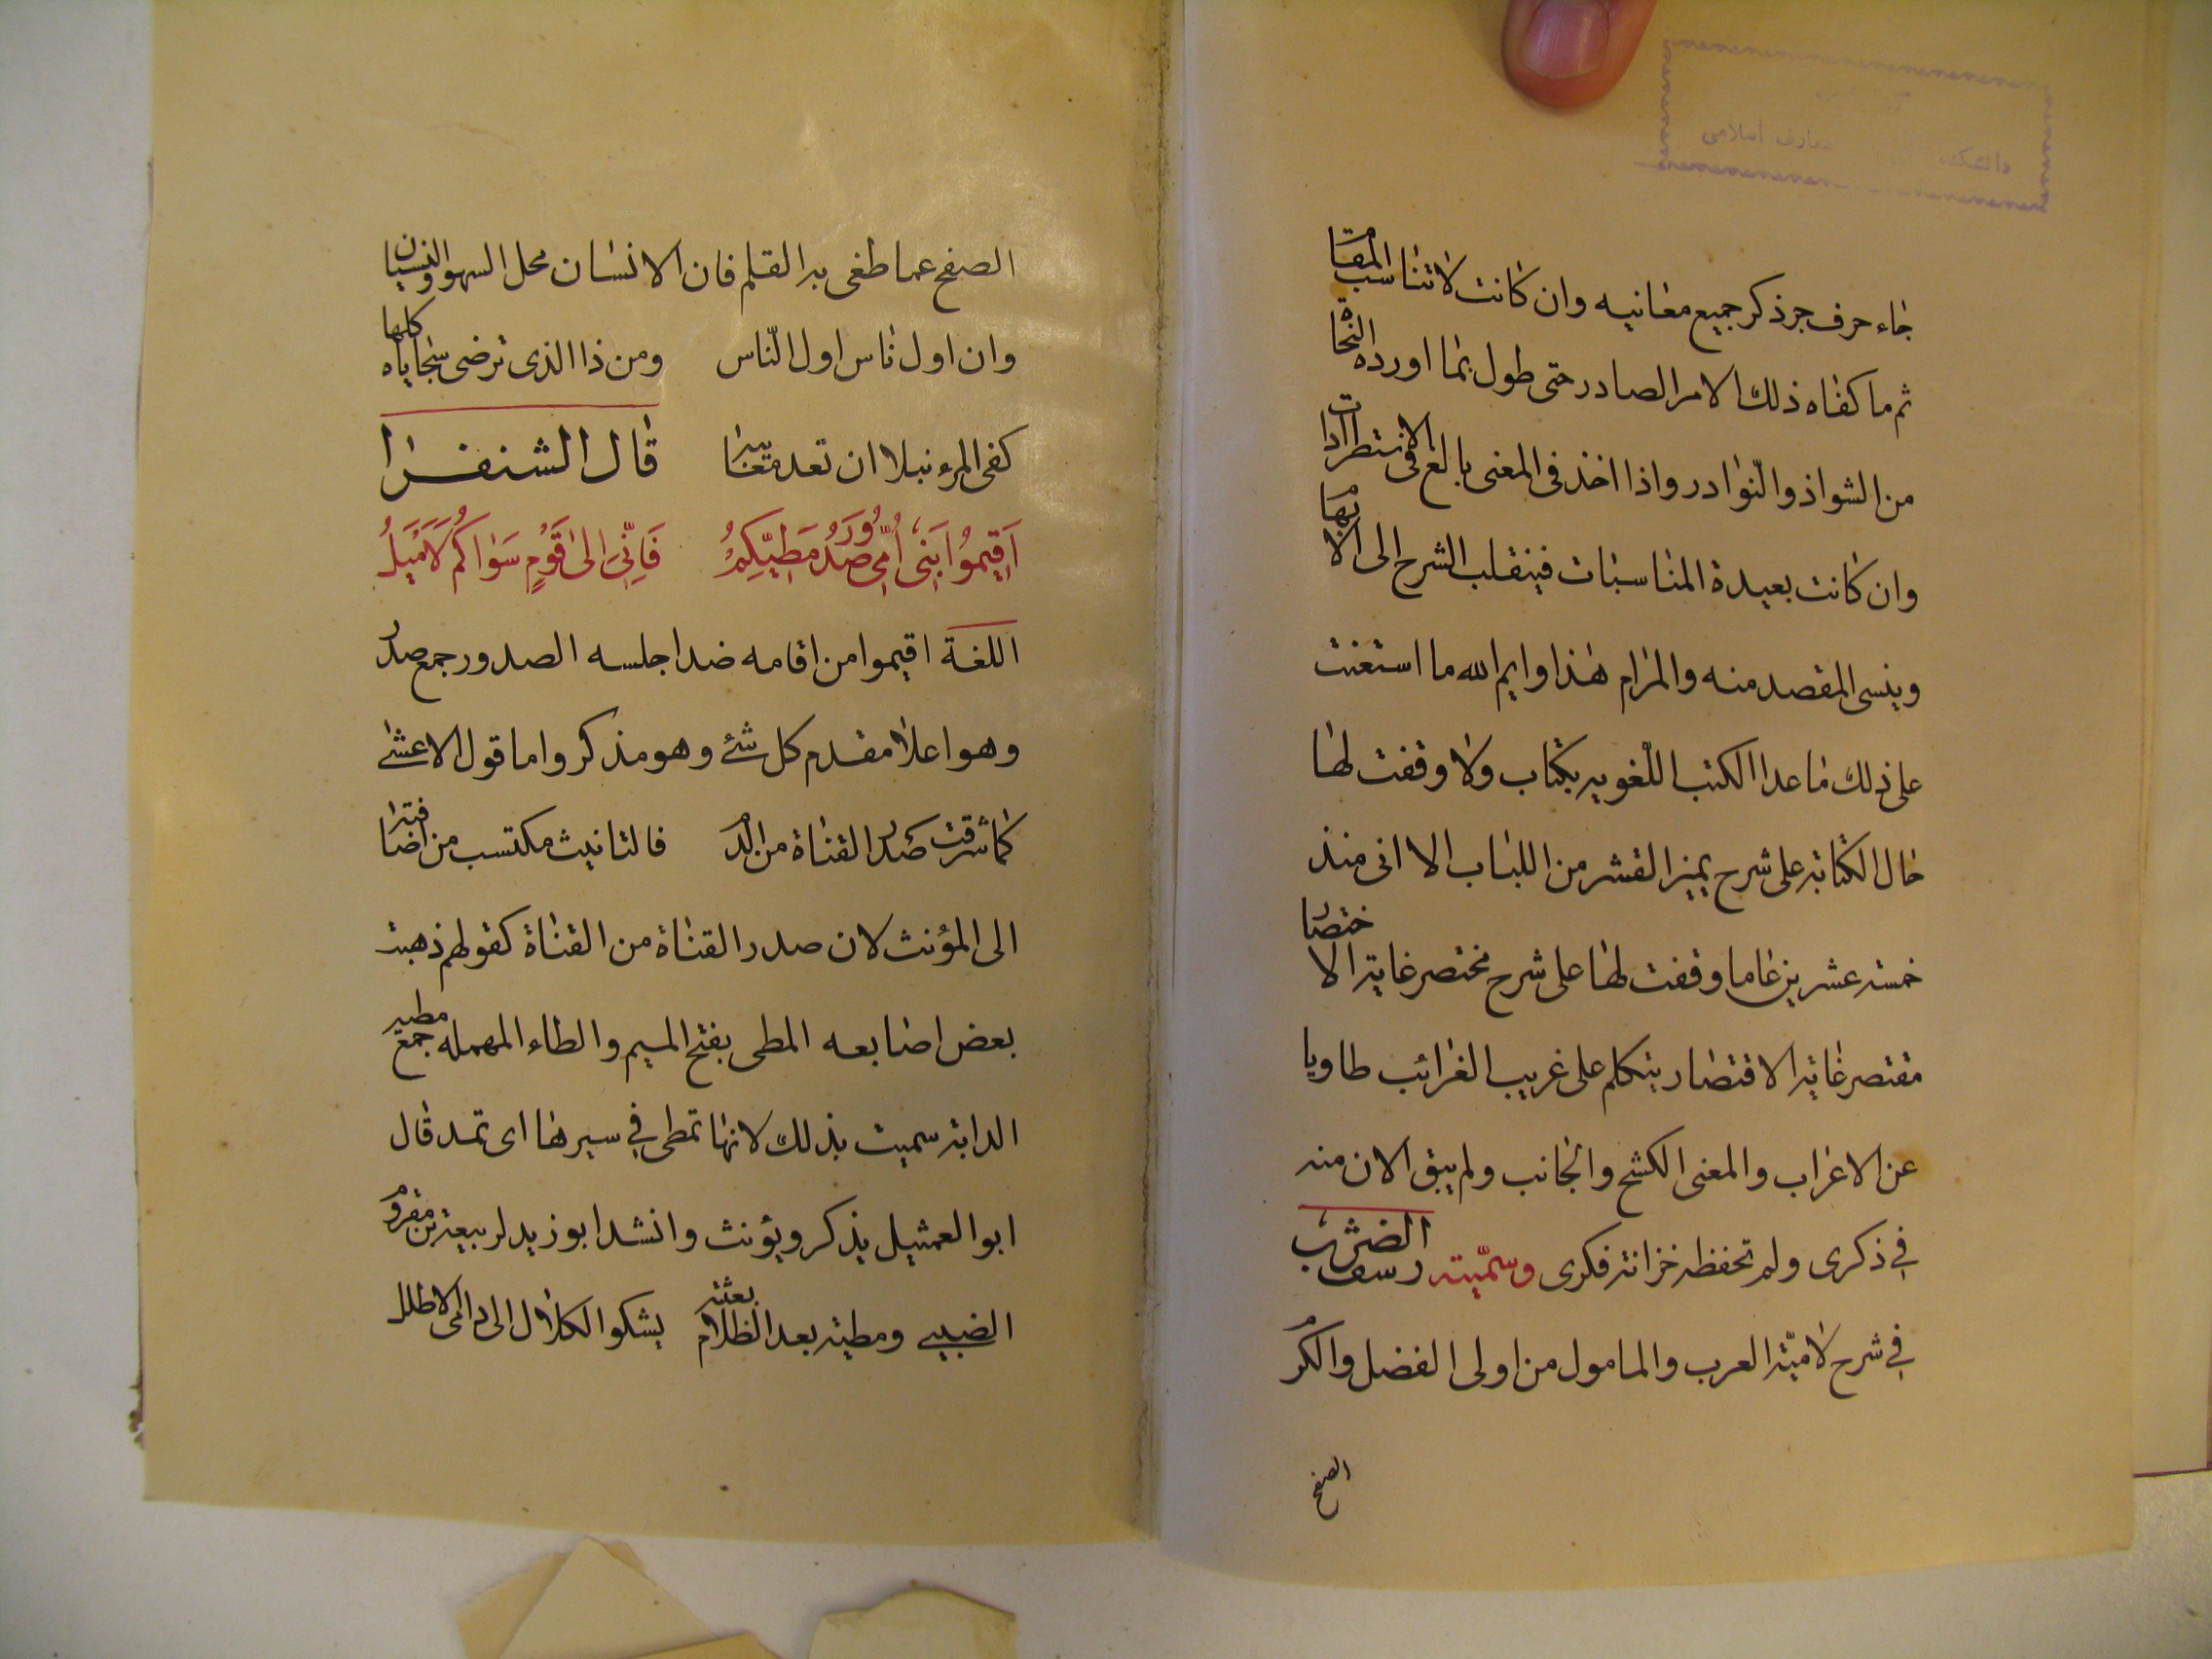 جاء حرف جر ذكر جميع معانيه وان كانت لا تناسب المقام
ثم ما كفاه ذلك الامر الصادر حتى طول بما اورده النحاة
من الشواذ والنوادر واذا اخذ فى المعنى بالغ فى الاستطرادات
وان كانت بعيدة المناسبات فينقلب الشرح الى الابهام
وينسى المقصد منه والمرام هذا وايم الله ما استعنت
على ذلك ما عدا الكتب اللغويه بكتاب ولا وقفت لها
حال الكتابة على شرح يميز القشر من اللباب الا انى منذ
خمسة عشرين عاما وقفت لها على شرح مختصر غاية الاختصار
مقتصر غاية الاقتصار يتكلم على غريب الغرائب طاويا
عن الاعراب والمعنى الكشح والجانب ولم يبق الان منه
فى ذكرى ولم تحفظه خزانة فكرى وسمّيته رشف الضرب
فى شرح لاميّة العرب والمامول من اولى الفضل والكرم
الصفح
الصفح عما طغى به القلم فان الانسان محل السهو والنسيان
وان اول ناس اول النّاس ومن ذا الذى ترضى سجاياه كلها
كفى المرء نبلا ان تعد معايبه قال الشنفرا
اَقِيمُوا بَنِى اُمِّى صُدُورَ مَطِيِّكِمُ فَاِنِّى اِلىٰ قَوْمٍ سَوٰاكُمُ لَاَمْيَلُ
اللغة اقيموا من اقامه ضد اجلسه الصدور جمع صدر
وهو اعلا مقدم كل شئ وهو مذكر واما قول الاعشى
كما شرقت صدر القناة من الدم فالتانيث مكتسب من اضافته
الى المؤنث لان صدر القناة من القناة كقولهم ذهبت
بعض اصابعه المطى بفتح الميم والطاء المهمله جمع مطيه
الدابة سميت بذلك لانها تمطى فى سيرها اى تمد قال
ابو العميثل يذكر ويؤنث وانشد ابو زيد لربيعة بن مقروم
الضبى ومطية بعد الظلام بعثته يشكو الكلال الى دامى الاظلل